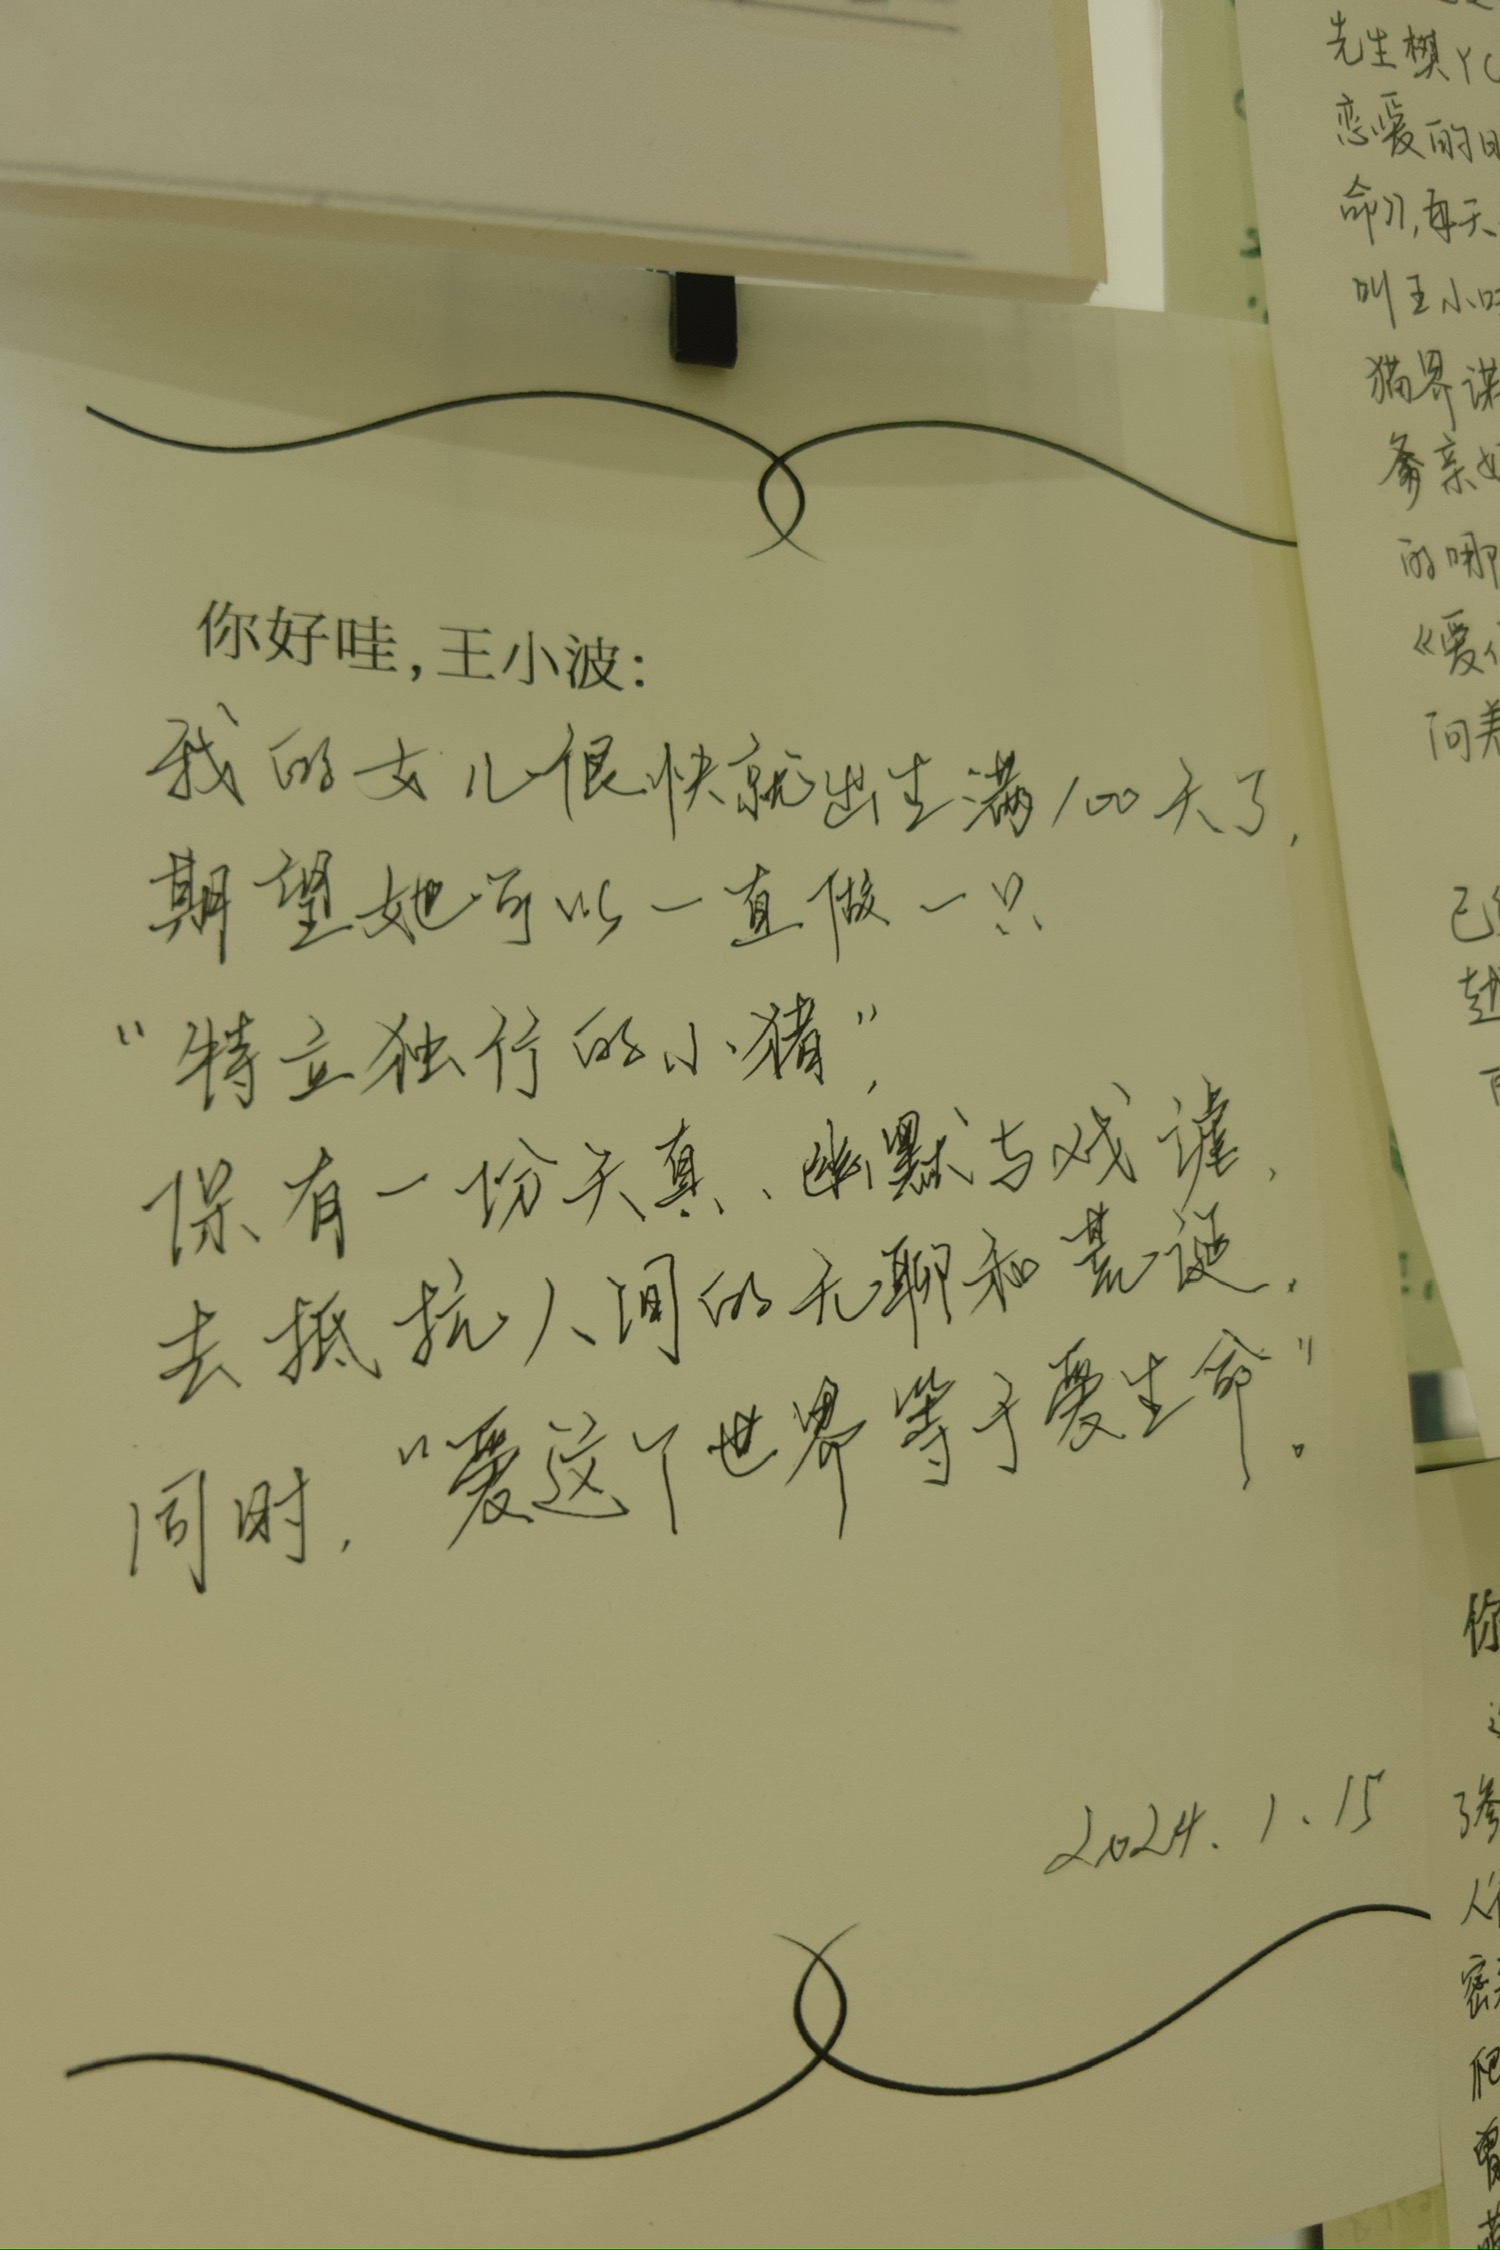 你好哇，王小波：
我的女儿很快就出生满100天了，
期望她可以一直做一只
“特立独行的小猪”，
保有一份天真、幽默与戏谑，
去抵抗人间的无聊和荒诞.
同时，“爱这个世界等于爱生命”。
2024.1.15
先生樊YC
恋爱的日
命》，每天
叫王小
猫界谋
爹亲
的哪
《爱
问美
已
越
你
了参
人
密
爬
曾